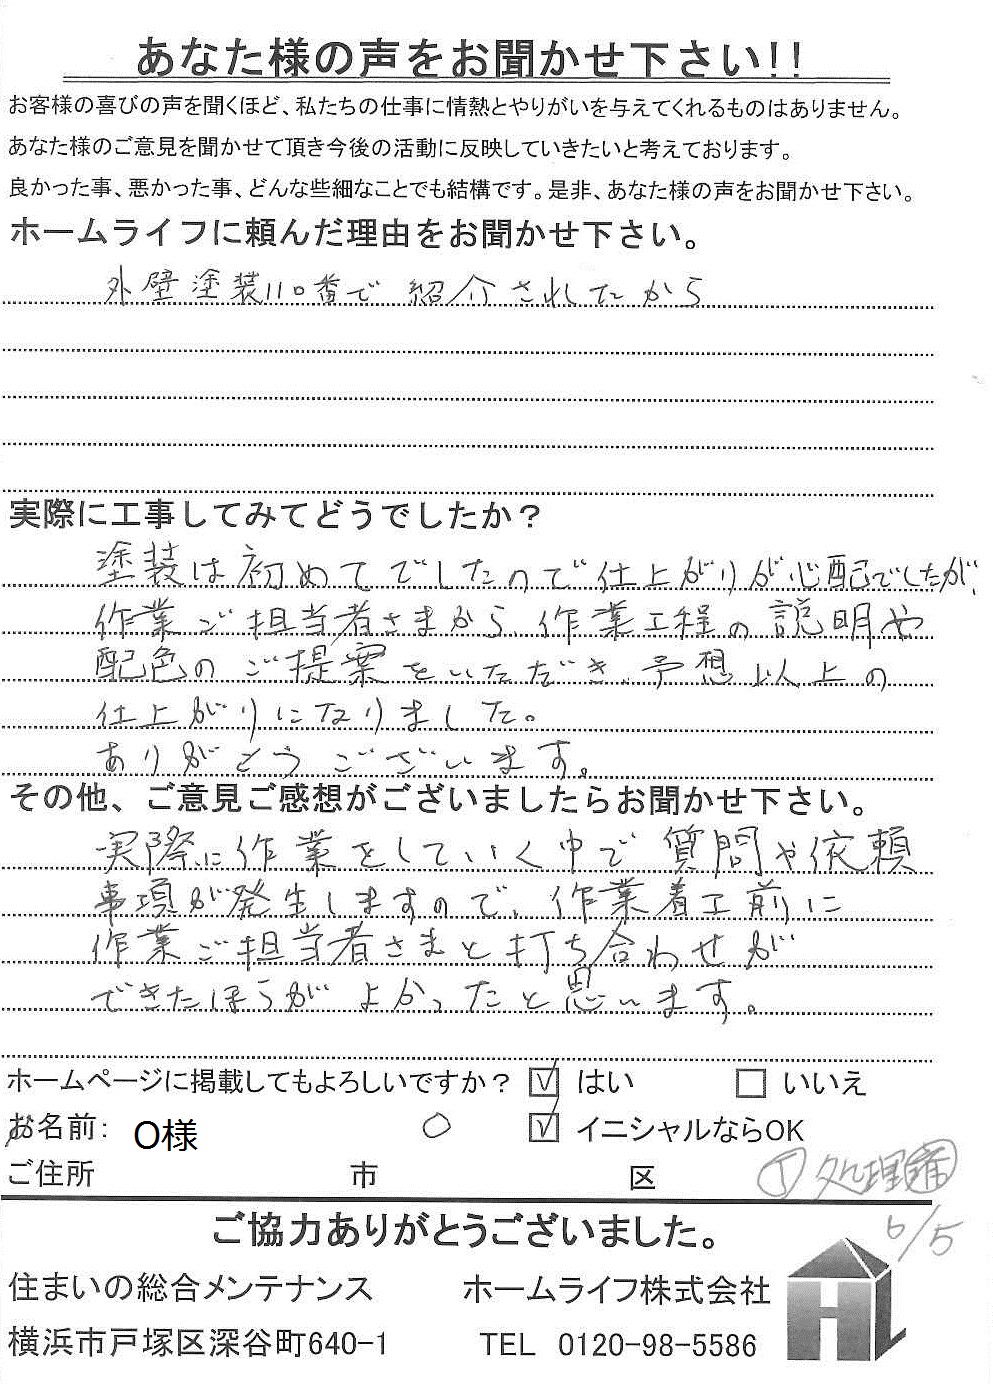 あなた様の声をお聞かせ下さい!!
お客様の喜びの声を聞くほど、私たちの仕事に情熱とやりがいを与えてくれるものはありません。
あなた様のご意見を聞かせて頂き今後の活動に反映していきたいと考えております。
良かった事、悪かった事、どんな些細なことでも結構です。是非、あなた様の声をお聞かせ下さい。
ホームライフに頼んだ理由をお聞かせ下さい。
外壁塗装110番で紹介されたから
実際に工事してみてどうでしたか？
塗装は初めてでしたので仕上がりが心配でしたが、
作業ご担当者さまから、作業工程の説明や
配色のご提案をいただき、予想以上の
仕上がりになりました。
ありがとうございます。
その他、ご意見ご感想がございましたらお聞かせ下さい。
実際に作業をしていく中で質問や依頼
事項が発生しますので、作業着工前に
作業ご担当者さまと打ち合わせが
できたほうがよかったと思います。
ホームページに掲載してもよろしいですか？ はい いいえ
お名前: O様 ○ イニシャルならOK
ご住所 市 区
処理済
6/5
ご協力ありがとうございました。
住まいの総合メンテナンス ホームライフ株式会社
横浜市戸塚区深谷町640-1 TEL 0120-98-5586